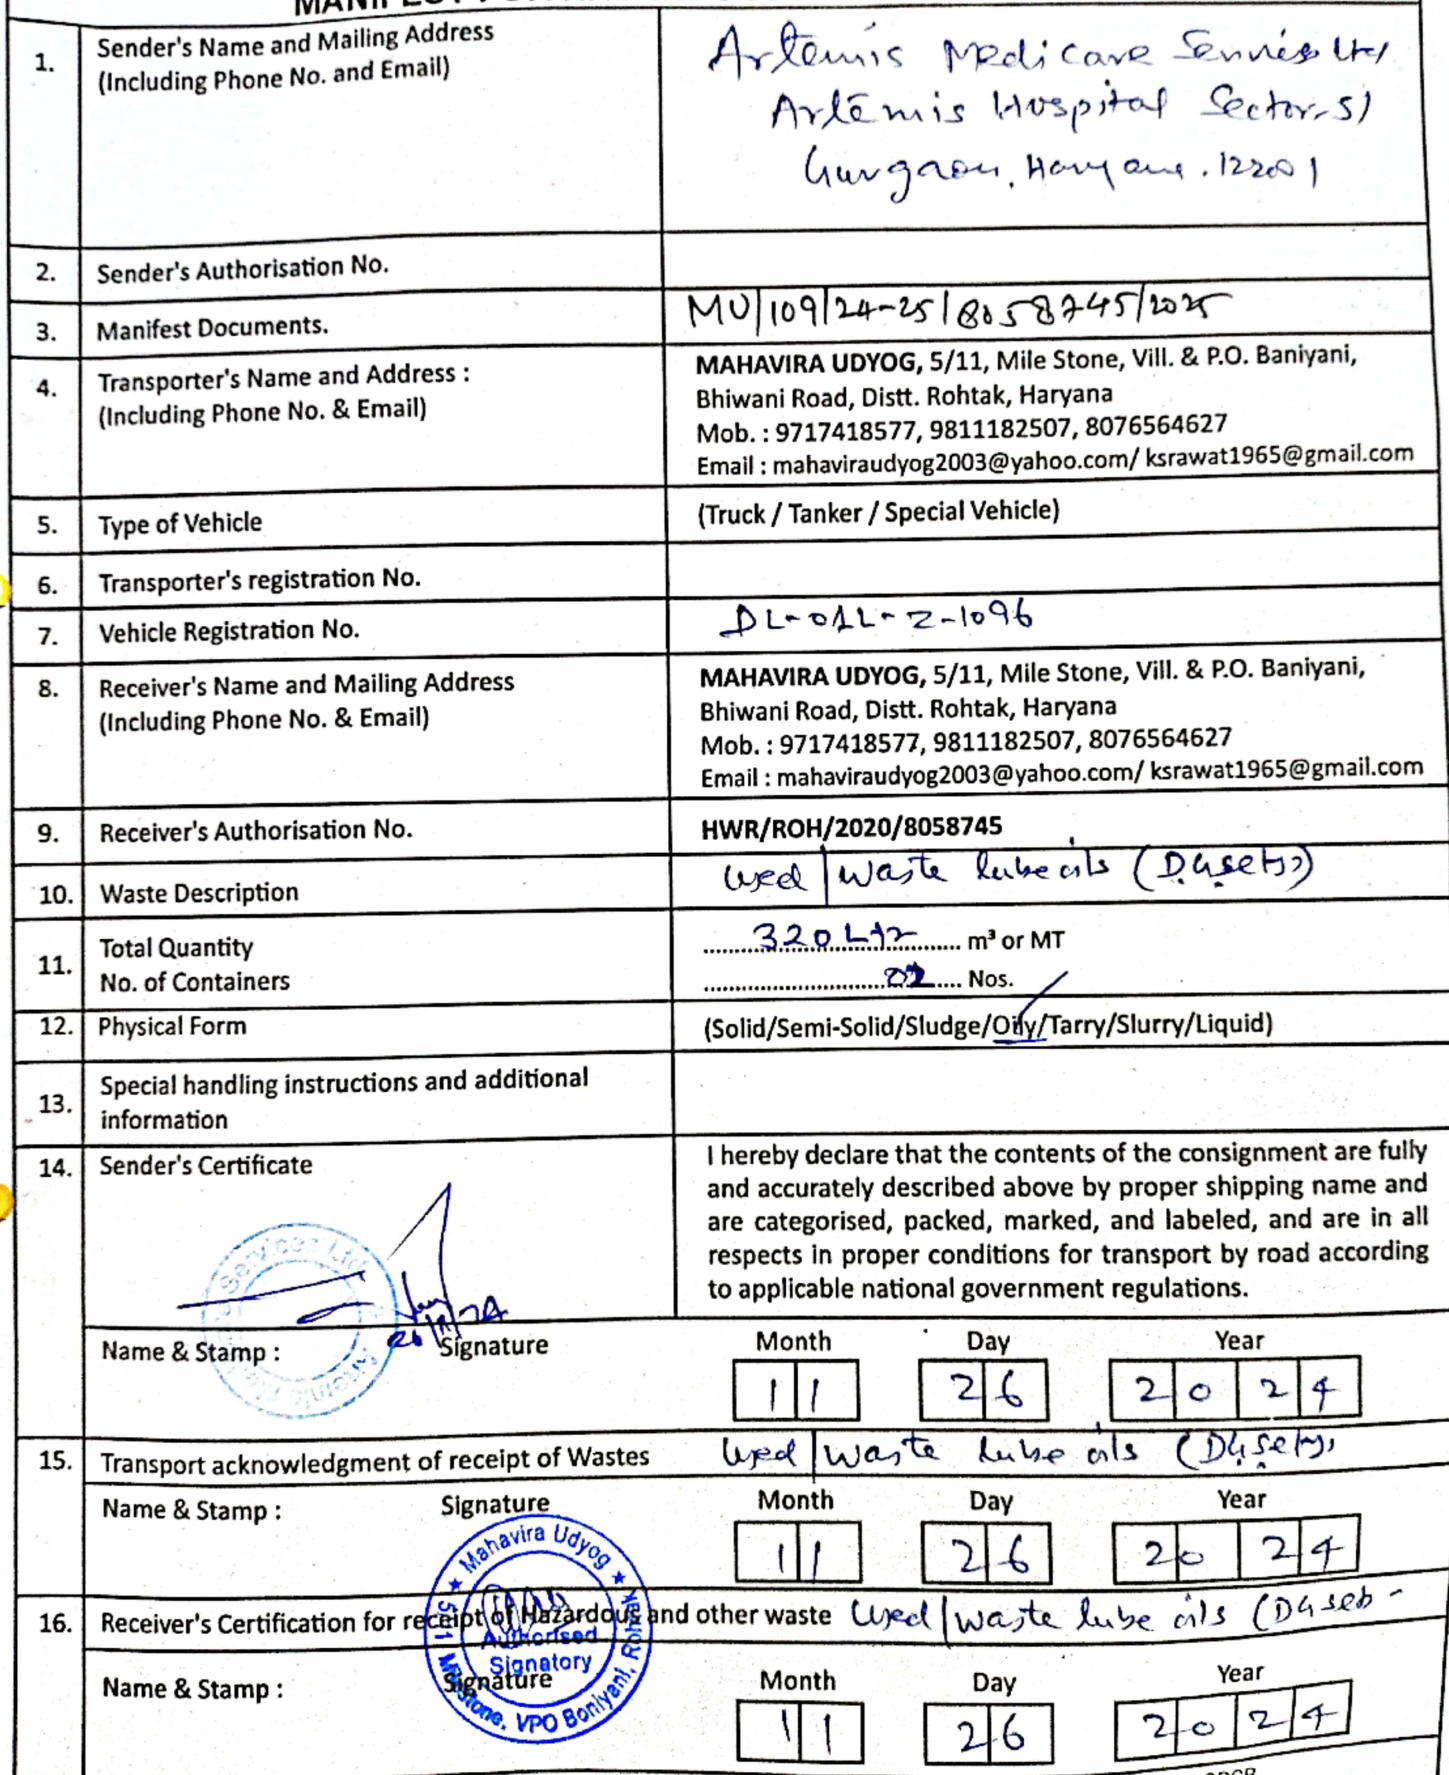 1. Sender's Name and Mailing Address
(Including Phone No. and Email)
Artemis Medicare Services Ltd
Artemis Hospital Sector-51
Gurgaon, Haryana. 122001
2. Sender's Authorisation No.
3. Manifest Documents.
MU/109/24-25/8058745/2025
4. Transporter's Name and Address :
(Including Phone No. & Email)
MAHAVIRA UDYOG, 5/11, Mile Stone, Vill. & P.O. Baniyani,
Bhiwani Road, Distt. Rohtak, Haryana
Mob. : 9717418577, 9811182507, 8076564627
Email : mahaviraudyog2003@yahoo.com/ ksrawat1965@gmail.com
5. Type of Vehicle
(Truck / Tanker / Special Vehicle)
6. Transporter's registration No.
7. Vehicle Registration No.
DL-01L-Z-1096
8. Receiver's Name and Mailing Address
(Including Phone No. & Email)
MAHAVIRA UDYOG, 5/11, Mile Stone, Vill. & P.O. Baniyani,
Bhiwani Road, Distt. Rohtak, Haryana
Mob. : 9717418577, 9811182507, 8076564627
Email : mahaviraudyog2003@yahoo.com/ ksrawat1965@gmail.com
9. Receiver's Authorisation No.
HWR/ROH/2020/8058745
10. Waste Description
Used/Waste lube oils
11. Total Quantity
320 Ltr m³ or MT
No. of Containers
02 Nos.
12. Physical Form
(Solid/Semi-Solid/Sludge/Oily/Tarry/Slurry/Liquid)
13. Special handling instructions and additional
information
14. Sender's Certificate
I hereby declare that the contents of the consignment are fully
and accurately described above by proper shipping name and
are categorised, packed, marked, and labeled, and are in all
respects in proper conditions for transport by road according
to applicable national government regulations.
Services Ltd.
Artemis
26/11/24
Name & Stamp : Signature
Month Day Year
11 26 2024
15. Transport acknowledgment of receipt of Wastes
Used/Waste lube oils
Name & Stamp : Signature
Month Day Year
11 26 2024
Mahavira Udyog
Authorised
Signatory
Milestone, VPO Boniyani, Rohtak
16. Receiver's Certification for receipt of Hazardous and other waste Used/Waste lube oils
Name & Stamp : Signature
Month Day Year
11 26 2024